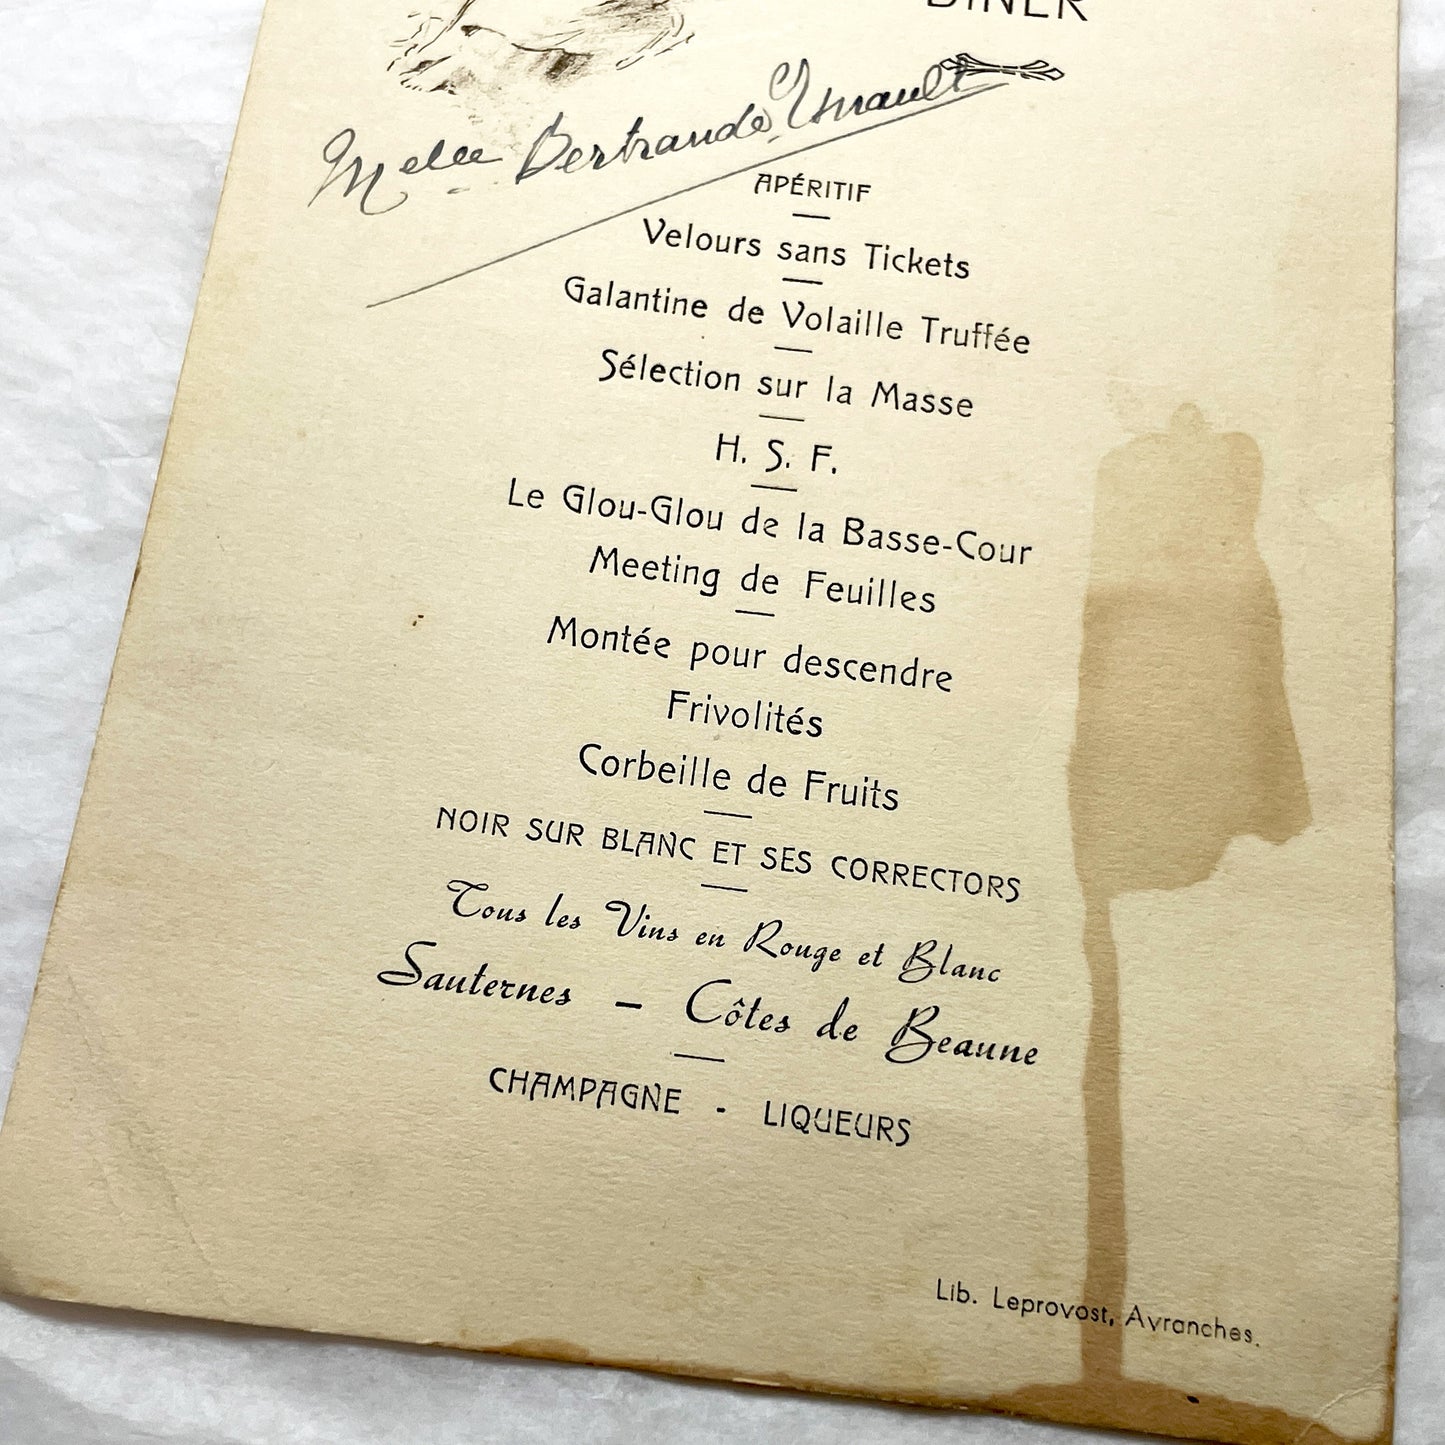 DINER
Melle Bertrande Esnault
APÉRITIF
Velours sans Tickets
Galantine de Volaille Truffée
Sélection sur la Masse
H. S. F.
Le Glou-Glou de la Basse-Cour
Meeting de Feuilles
Montée pour descendre
Frivolités
Corbeille de Fruits
NOIR SUR BLANC ET SES CORRECTORS
Tous les Vins en Rouge et Blanc
Sauternes – Côtes de Beaune
CHAMPAGNE - LIQUEURS
Lib. Leprovost, Avranches.